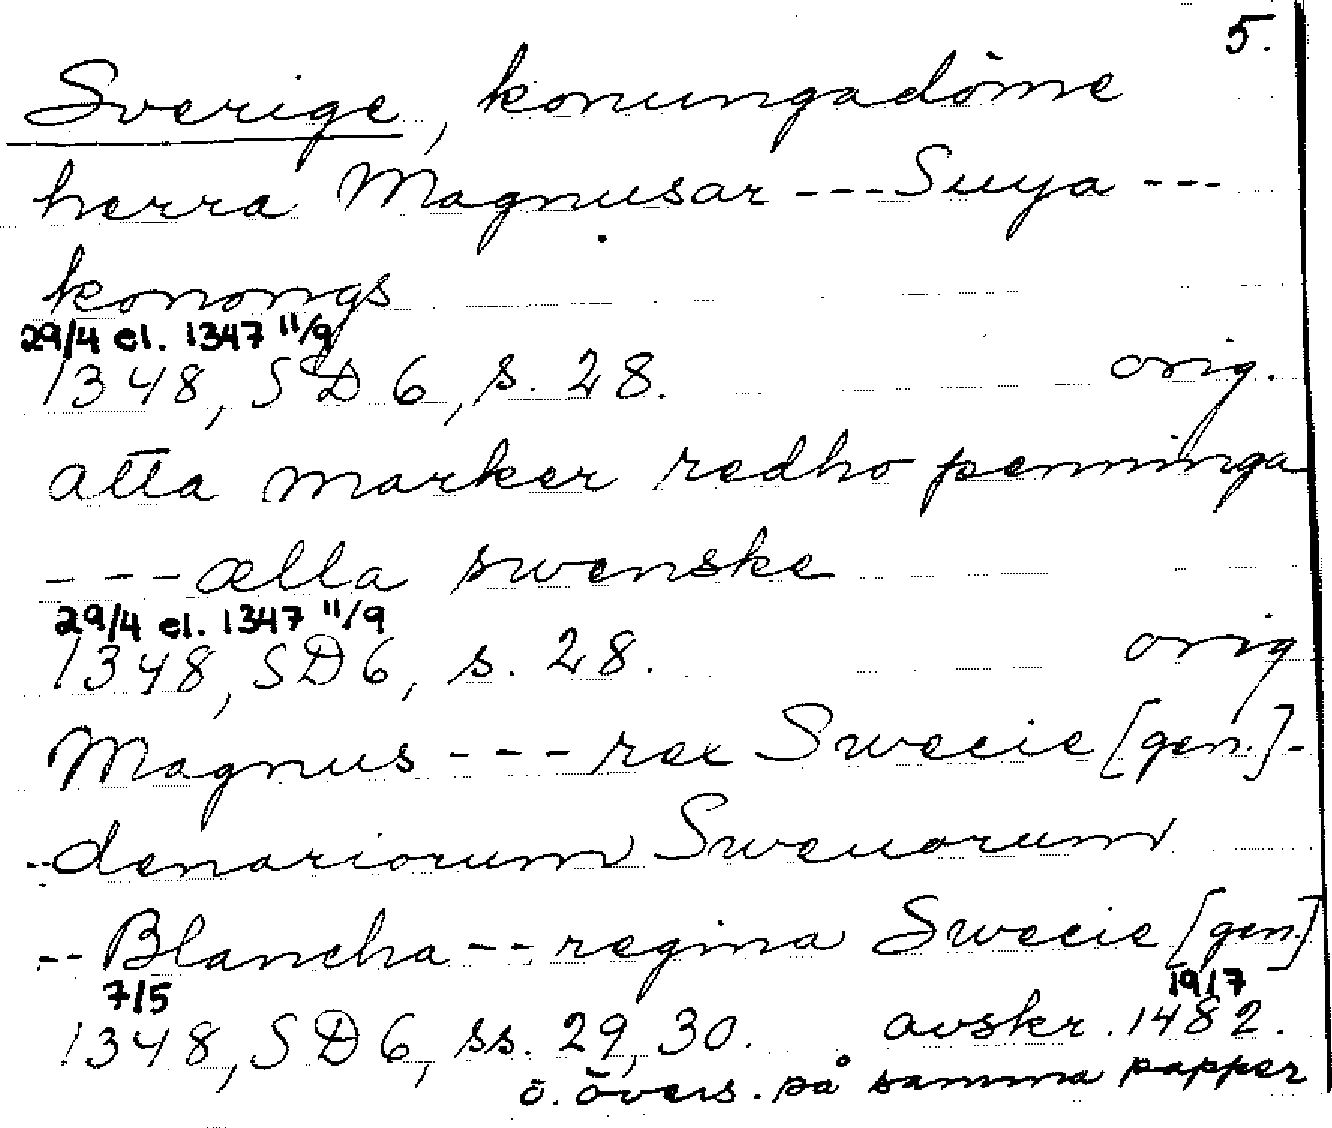 5.
Sverige, konungadöme
herra Magnusar --- Suya ---
konongs
29/4 el. 1347 11/9
1348, SD 6, s. 28. orig.
atta marker redho penninga
--- ælla swenske
29/4 el. 1347 11/9
1348, SD 6, s. 28. orig
Magnus --- rex Swecie [gen.]-
-- denariorum Sweuorum
-- Blancha -- regina Swecie [gen.]
7/5 19/7
1348, SD 6, ss. 29, 30. avskr. 1482.
o. övers. på samma papper